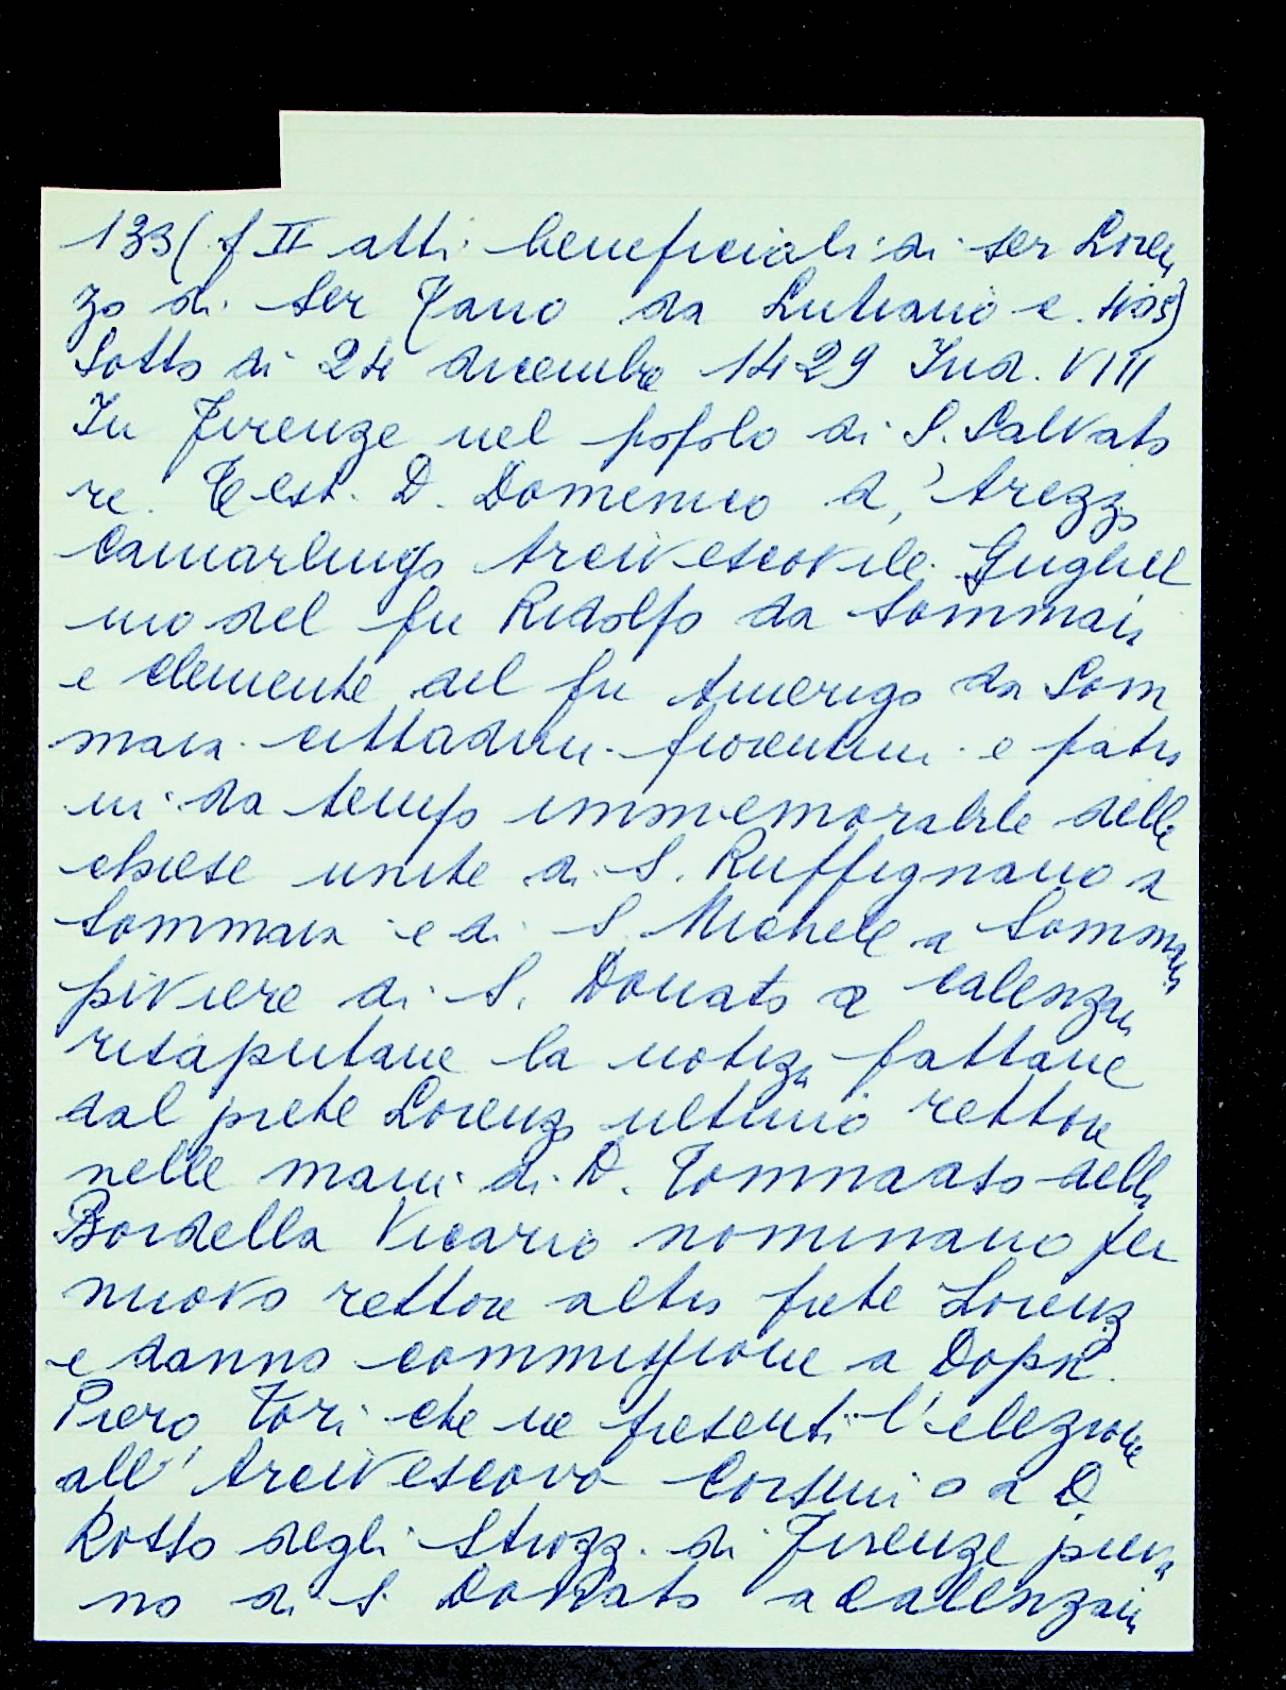 133 (f II atti beneficiali di ser Loren
zo di Ser Tano da Lutiano c. 405)
Sotto di 24 dicembre 1429 Ind. VIII
In Firenze nel popolo di S. Salvato
re. Test. D. Domenico d'Arezzo
Camarlingo Arcivescovile. Gugliel
mo del fu Ridolfo da Sommaia
e Clemente del fu Amerigo da Som
maia cittadini fiorentini e patro
ni da tempo immemorabile delle
chiese unite di S. Ruffignano a
Sommaia e di S. Michele a Sommaia
piviere di S. Donato a Calenzano
risaputane la notizia fattane
dal prete Lorenzo ultimo rettore
nelle mani di D. Tommaaso della
Bordella Vicario nominano per
nuovo rettore altro prete Lorenzo
e danno commissione a
Piero Tori che ne presenti l'elezione
all'Arcivescovo Corsini o a D.
Rosso degli Strozzi di Firenze pieva
no di S. Donato a Calenzano